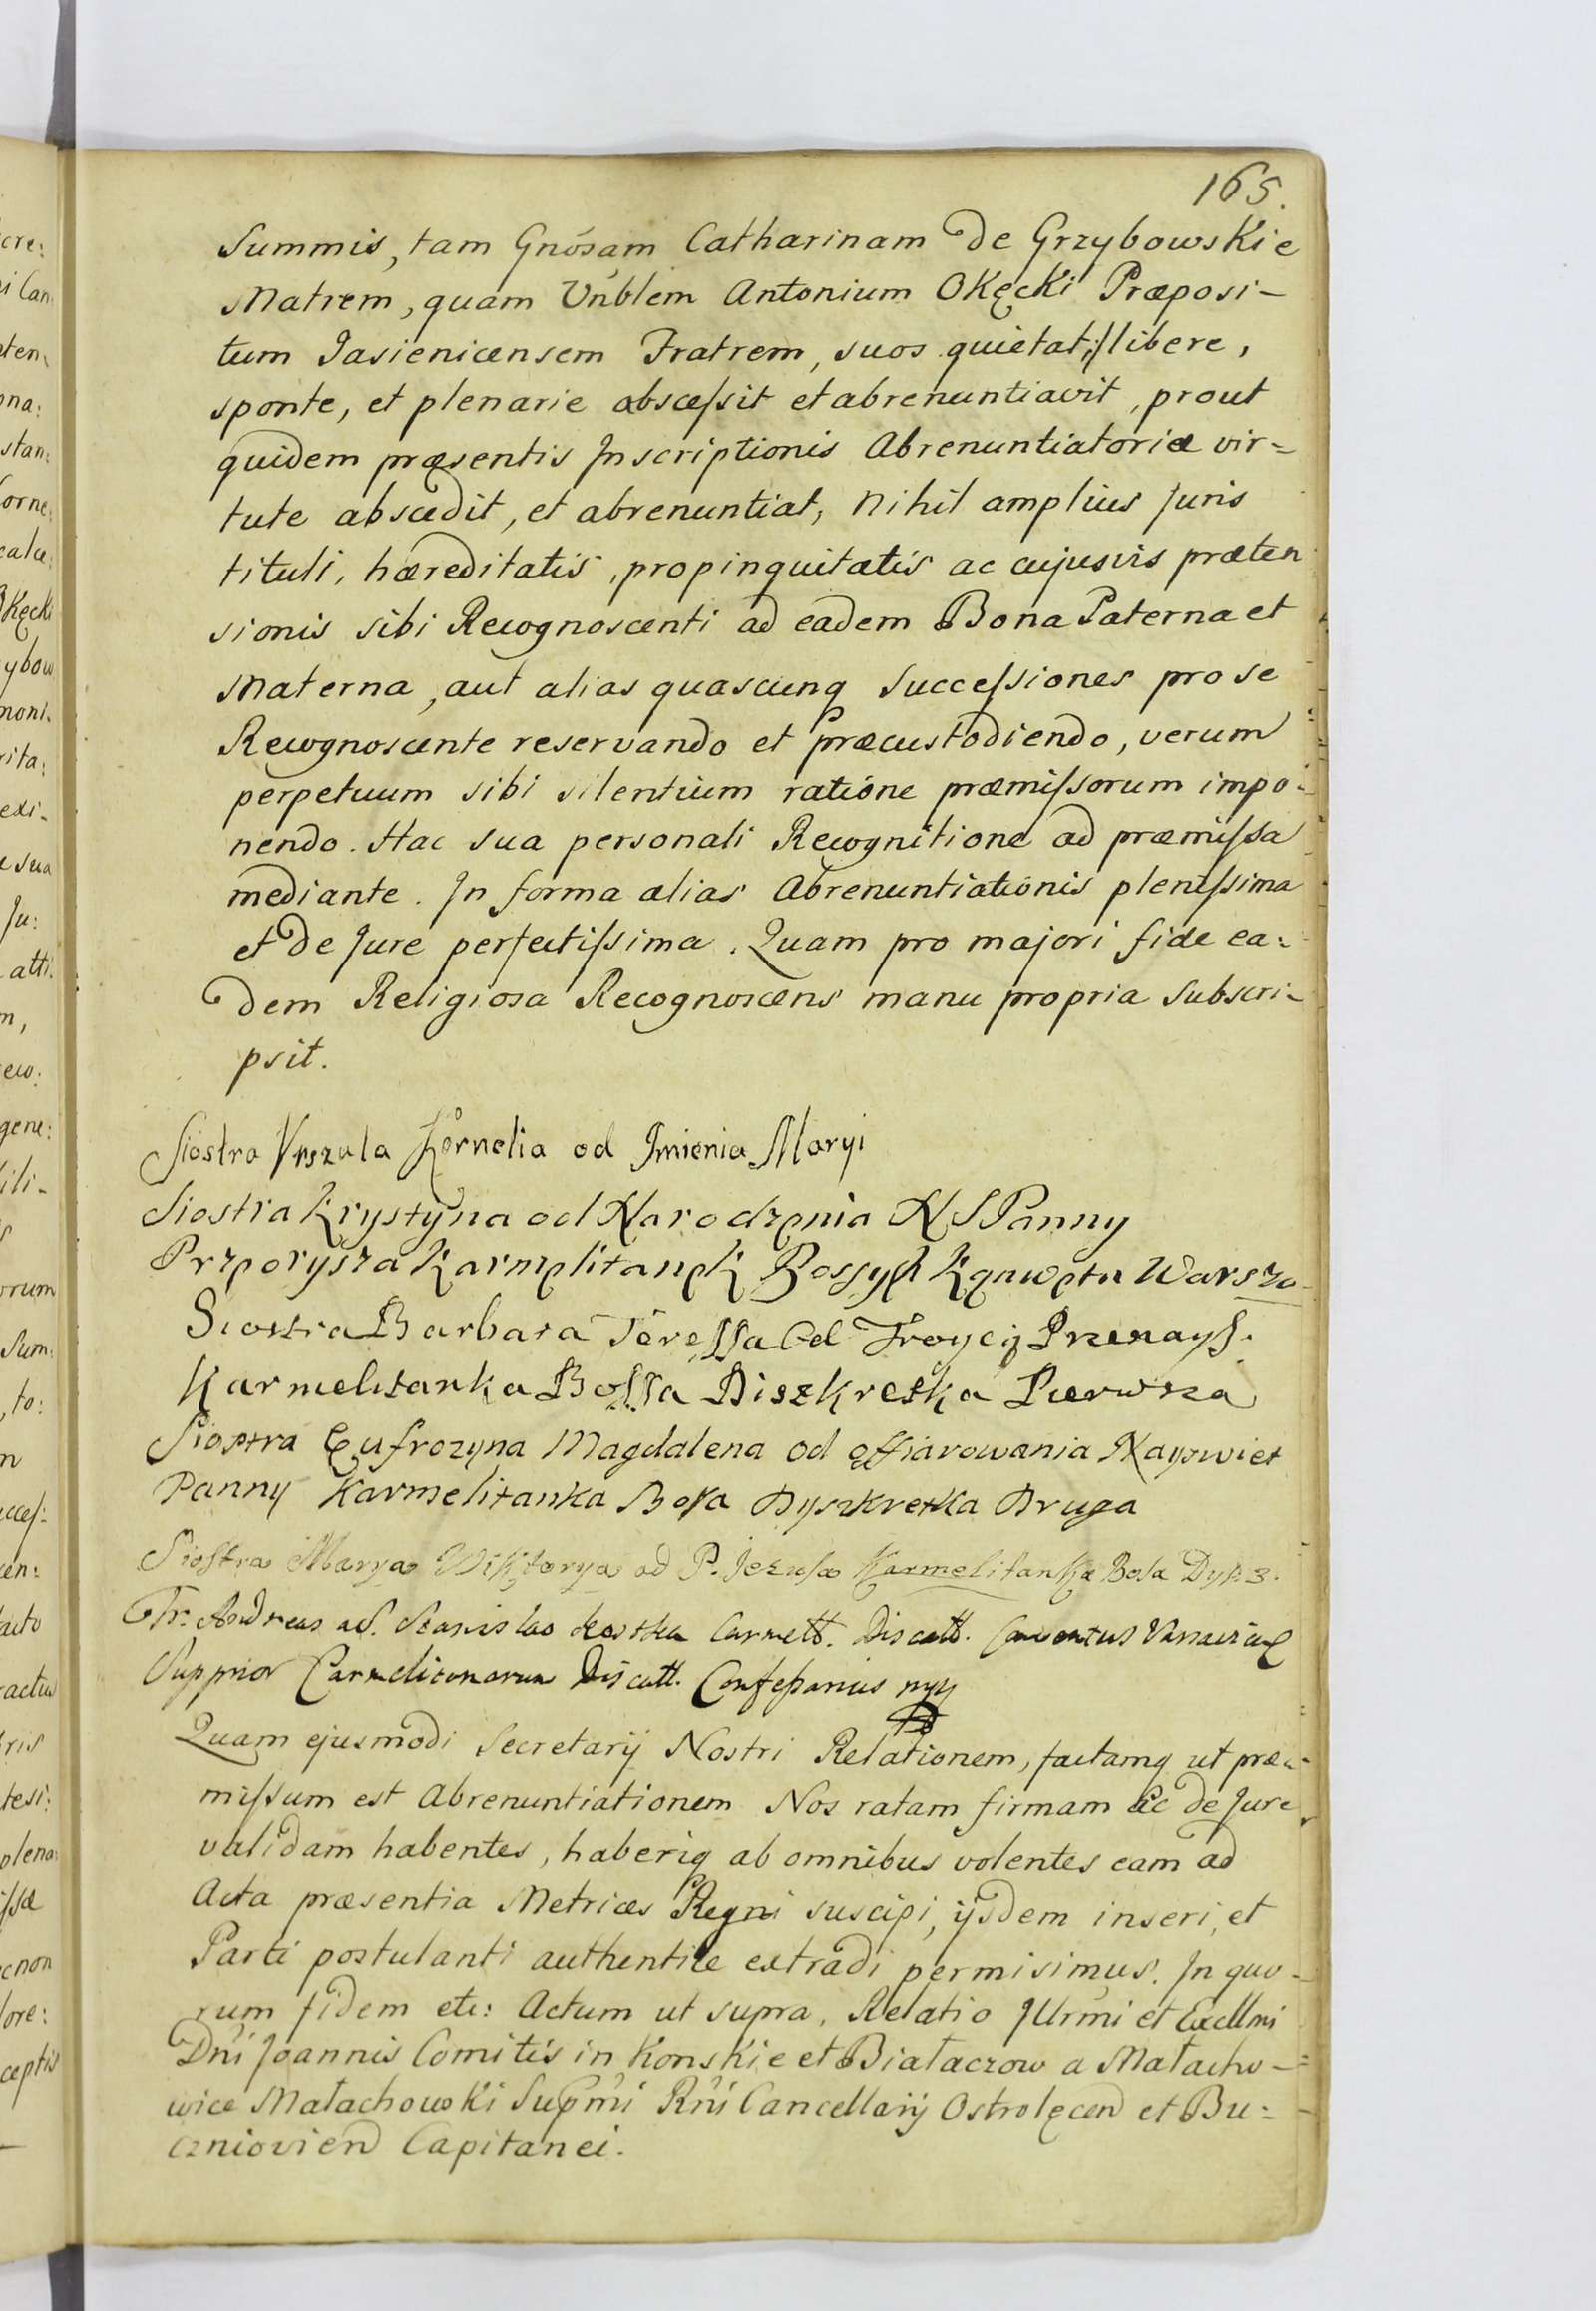 165.
Summis, tam Gnosam Catharinam De Grzybowskie
Matrem, quam Vnblem Antonium Okęcki Præposi-
tum Jasienicensem Fratrem, suos quietat;/libere,
sponte, et plenarie abscessit et abrenuntiavit, prout
quidem præsentis Inscriptionis Abrenuntiatoriæ vir=
tute abscedit, et abrenuntiat, nihil amplius Juris
tituli, hæreditatis, propinquitatis ac cujusvis præten
sionis sibi Recognoscenti ad eadem Bona Paterna et
Materna, aut alias quascunq successiones pro se
Recognoscente reservando et præcustodiendo, verum
perpetuum sibi silentium ratione præmissorum impo-
nendo. Hac sua personali Recognitione ad præmissa
mediante. In forma alias Abrenuntiationis plenissima
et de Jure perfectissima. Quam pro majori fide ea=
dem Religiosa Recognoscens manu propria subscri-
psit.
Siostra Vrszula Kornelia od Imienia Maryi
Siostra Krystyna od Narodzenia N S Panny
Przeorysza Karmelitanek Bossych Konwetu Warsza-
Siostra Barbara Teressa Od Troycy Przenays.
Karmelitanka Bossa Diszkretka Pierwsza
Siostra Eufrozyna Magdalena od offiarowania Nayswiet
Panny Karmelitanka Bosa Dyszkretka Druga
Siostra Marya Wiktorya od P. Jezusa Karmelitanka Bosa Dys 3.
Fr. Andreas a S. Stanislao Kostka Carmelt. Discalt. Conventus Varsavien
Supprior Carmelitanarum Discalt. Confessarius
Quam ejusmodi Secretarij Nostri Relationem, factamq ut præ-
missum est Abrenuntiationem Nos ratam firmam ac de Jure
validam habentes, haberiq ab omnibus volentes eam ad
Acta præsentia Metrices Regni suscipi, ijsdem inseri, et
Parti postulanti authentice extradi permisimus. In quo-
rum fidem etc: Actum ut supra. Relatio Illrmi et Excllmi
Dni Joannis Comitis in Konskie et Białaczow a Małacho-
wice Małachowski Supmi Rni Cancellarij Ostrolęcen et Bu=
czniovien Capitanei.